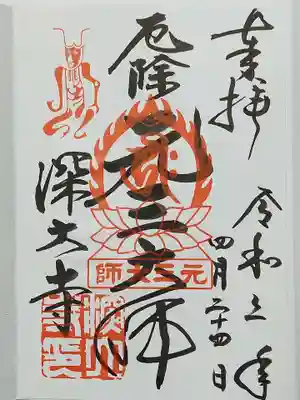 奉拝
令和三年
四月二十四日
厄除元三大師
深大寺
元三大師